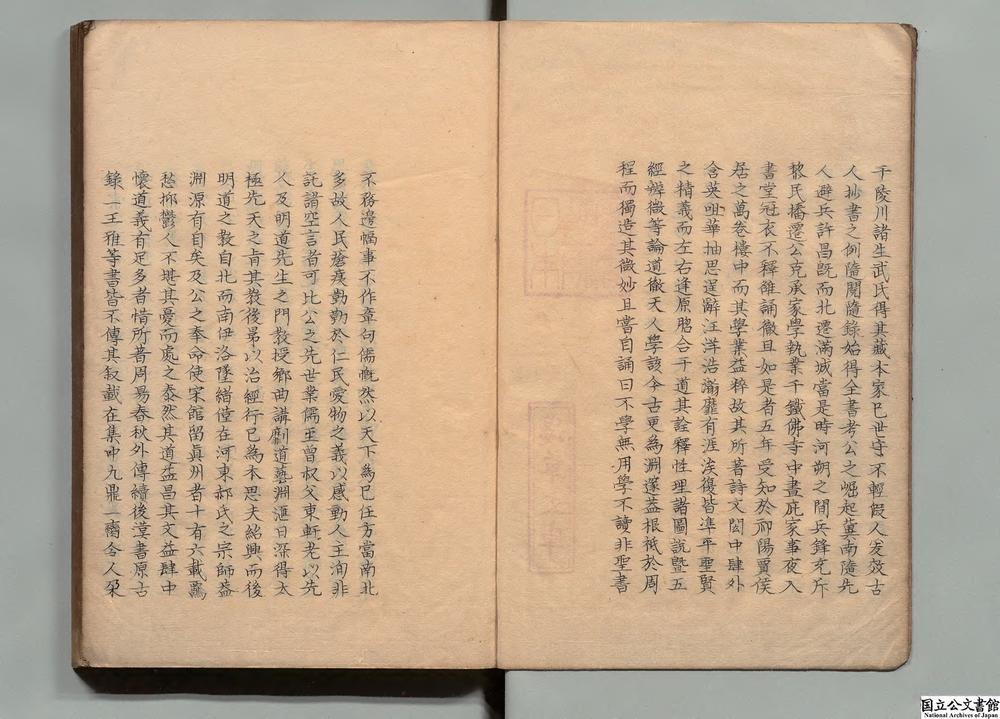 于陵川諸生武氏得其藏本家已世守不輕假人爰效古
人抄書之例隨閱隨錄始得全書考公之崛起冀南隨先
人避兵許昌旣而北遷滿城當是時河朔之間兵鋒充斥
黎民播遷公克承家學執業于鐵佛寺中晝庇家事夜入
書堂冠衣不釋雒誦徹旦如是者五年受知於祁陽賈侯
居之萬卷樓中而其學業益粹故其所著詩文閎中肆外
含英咀華抽思逞辭汪洋浩瀚靡有涯涘復皆準平聖賢
之精義而左右逢原脗合于道其詮釋性理諸圖說暨五
經辨微等論道徹天人學該今古更為淵邃蓋根柢於周
程而獨造其微妙且嘗自誦曰不學無用學不讀非聖書
不務邊幅事不作章句儒慨然以天下為己任方當南北
多故人民瘡痍勤勤於仁民愛物之義以感動人主洵非
託諸空言者可比公之先世業儒至曾叔父東軒老以先
人及明道先生之門教授鄉曲講劘道藝淵滙日深得太
極先天之㫖其教後弟以治經行已為本思夫紹興而後
明道之教自北而南伊洛墜緒僅在河東郝氏之宗師葢
淵源有自矣及公之奉命使宋館留真州者十有六載羈
愁抑鬱人不堪其憂而處之泰然其道益昌其文益肆中
懷道義有足多者惜所著周易春秋外傳續後漢書原古
錄一王雅等書皆不傳其叙載在集中九鼎一臠令人朶
国立公文書館
National Archives of Japan